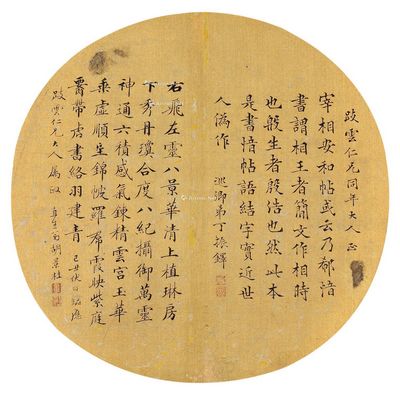 跂雲仁兄同年大人正
宰相安和帖或云乃郗愔
書謂相王者簡文作相時
也殷生者殷浩也然此本
是書愔帖語結字實近世
人偽作 巡卿弟丁振鐸
右飛左靈八景華清上植琳房
下秀丹瓊合度八紀攝御萬靈
神通六積感氣鍊精雲宮玉華
乘虛順生錦帔羅帬霞映紫庭
腎帶虎書絡羽建青 己丑伏日臨應
跂雲仁兄大人屬政 胡景桂